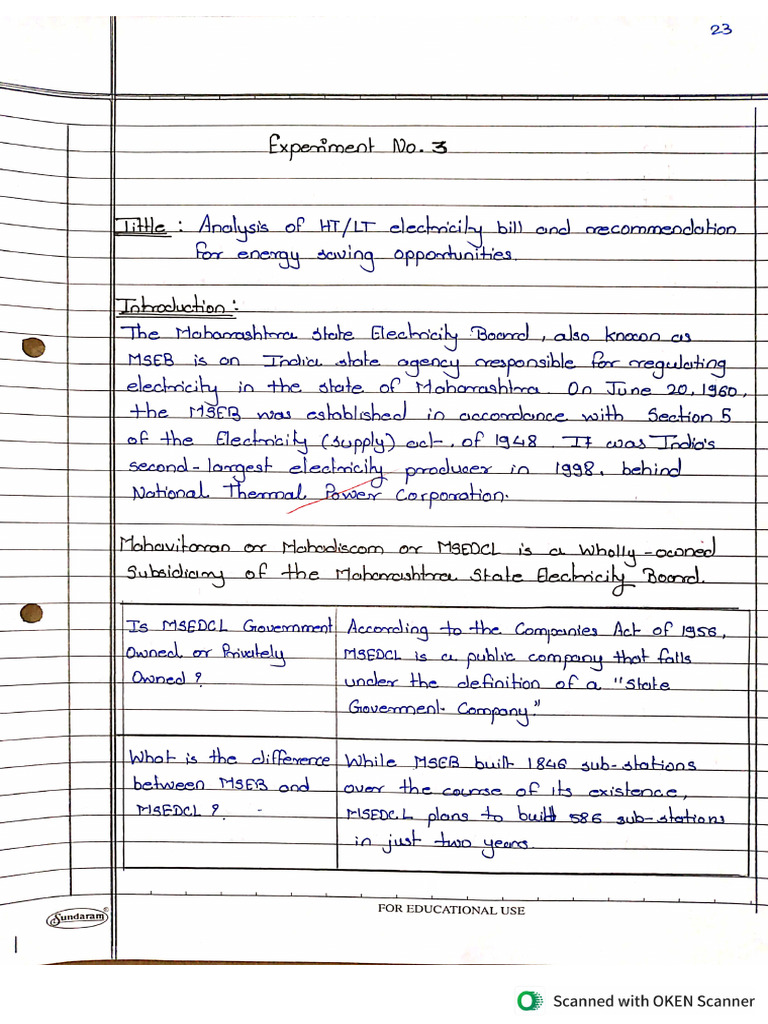 23
Experiment No. 3
Tittle : Analysis of HT/LT electricity bill and recommendation
for energy saving opportunities.
Introduction :
The Maharashtra State Electricity Board, also known as
MSEB is an India state agency responsible for regulating
electricity in the state of Maharashtra. On June 20, 1960,
the MSEB was established in accordance with Section 5
of the Electricity (supply) act. of 1948. It was India's
second-largest electricity producer in 1998, behind
National Thermal Power Corporation.
Mahavitaran or Mahadiscom or MSEDCL is a Wholly-owned
Subsidiary of the Maharashtra State Electricity Board.
Is MSEDCL Government
Owned or Privately
Owned ?
According to the Companies Act of 1956,
MSEDCL is a public company that falls
under the definition of a "State
Goverment Company."
What is the difference
between MSEB and
MSEDCL ?
While MSEB built 1846 sub-stations
over the course of its existence,
MSEDCL plans to built 586 sub-stations
in just two years.
Sundaram
FOR EDUCATIONAL USE
Scanned with OKEN Scanner